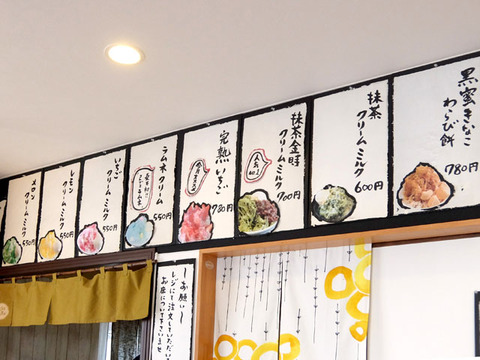 黒蜜きなこ
わらび餅
780円
抹茶
クリームミルク
600円
抹茶金時
クリームミルク
人気
No.1
700円
完熟いちご
780円
ラムネクリーム
550円
いちご
クリームミルク
550円
レモン
クリームミルク
550円
メロン
クリームミルク
550円
〜お願い〜
レジにて注文していただいて
お座席についてお